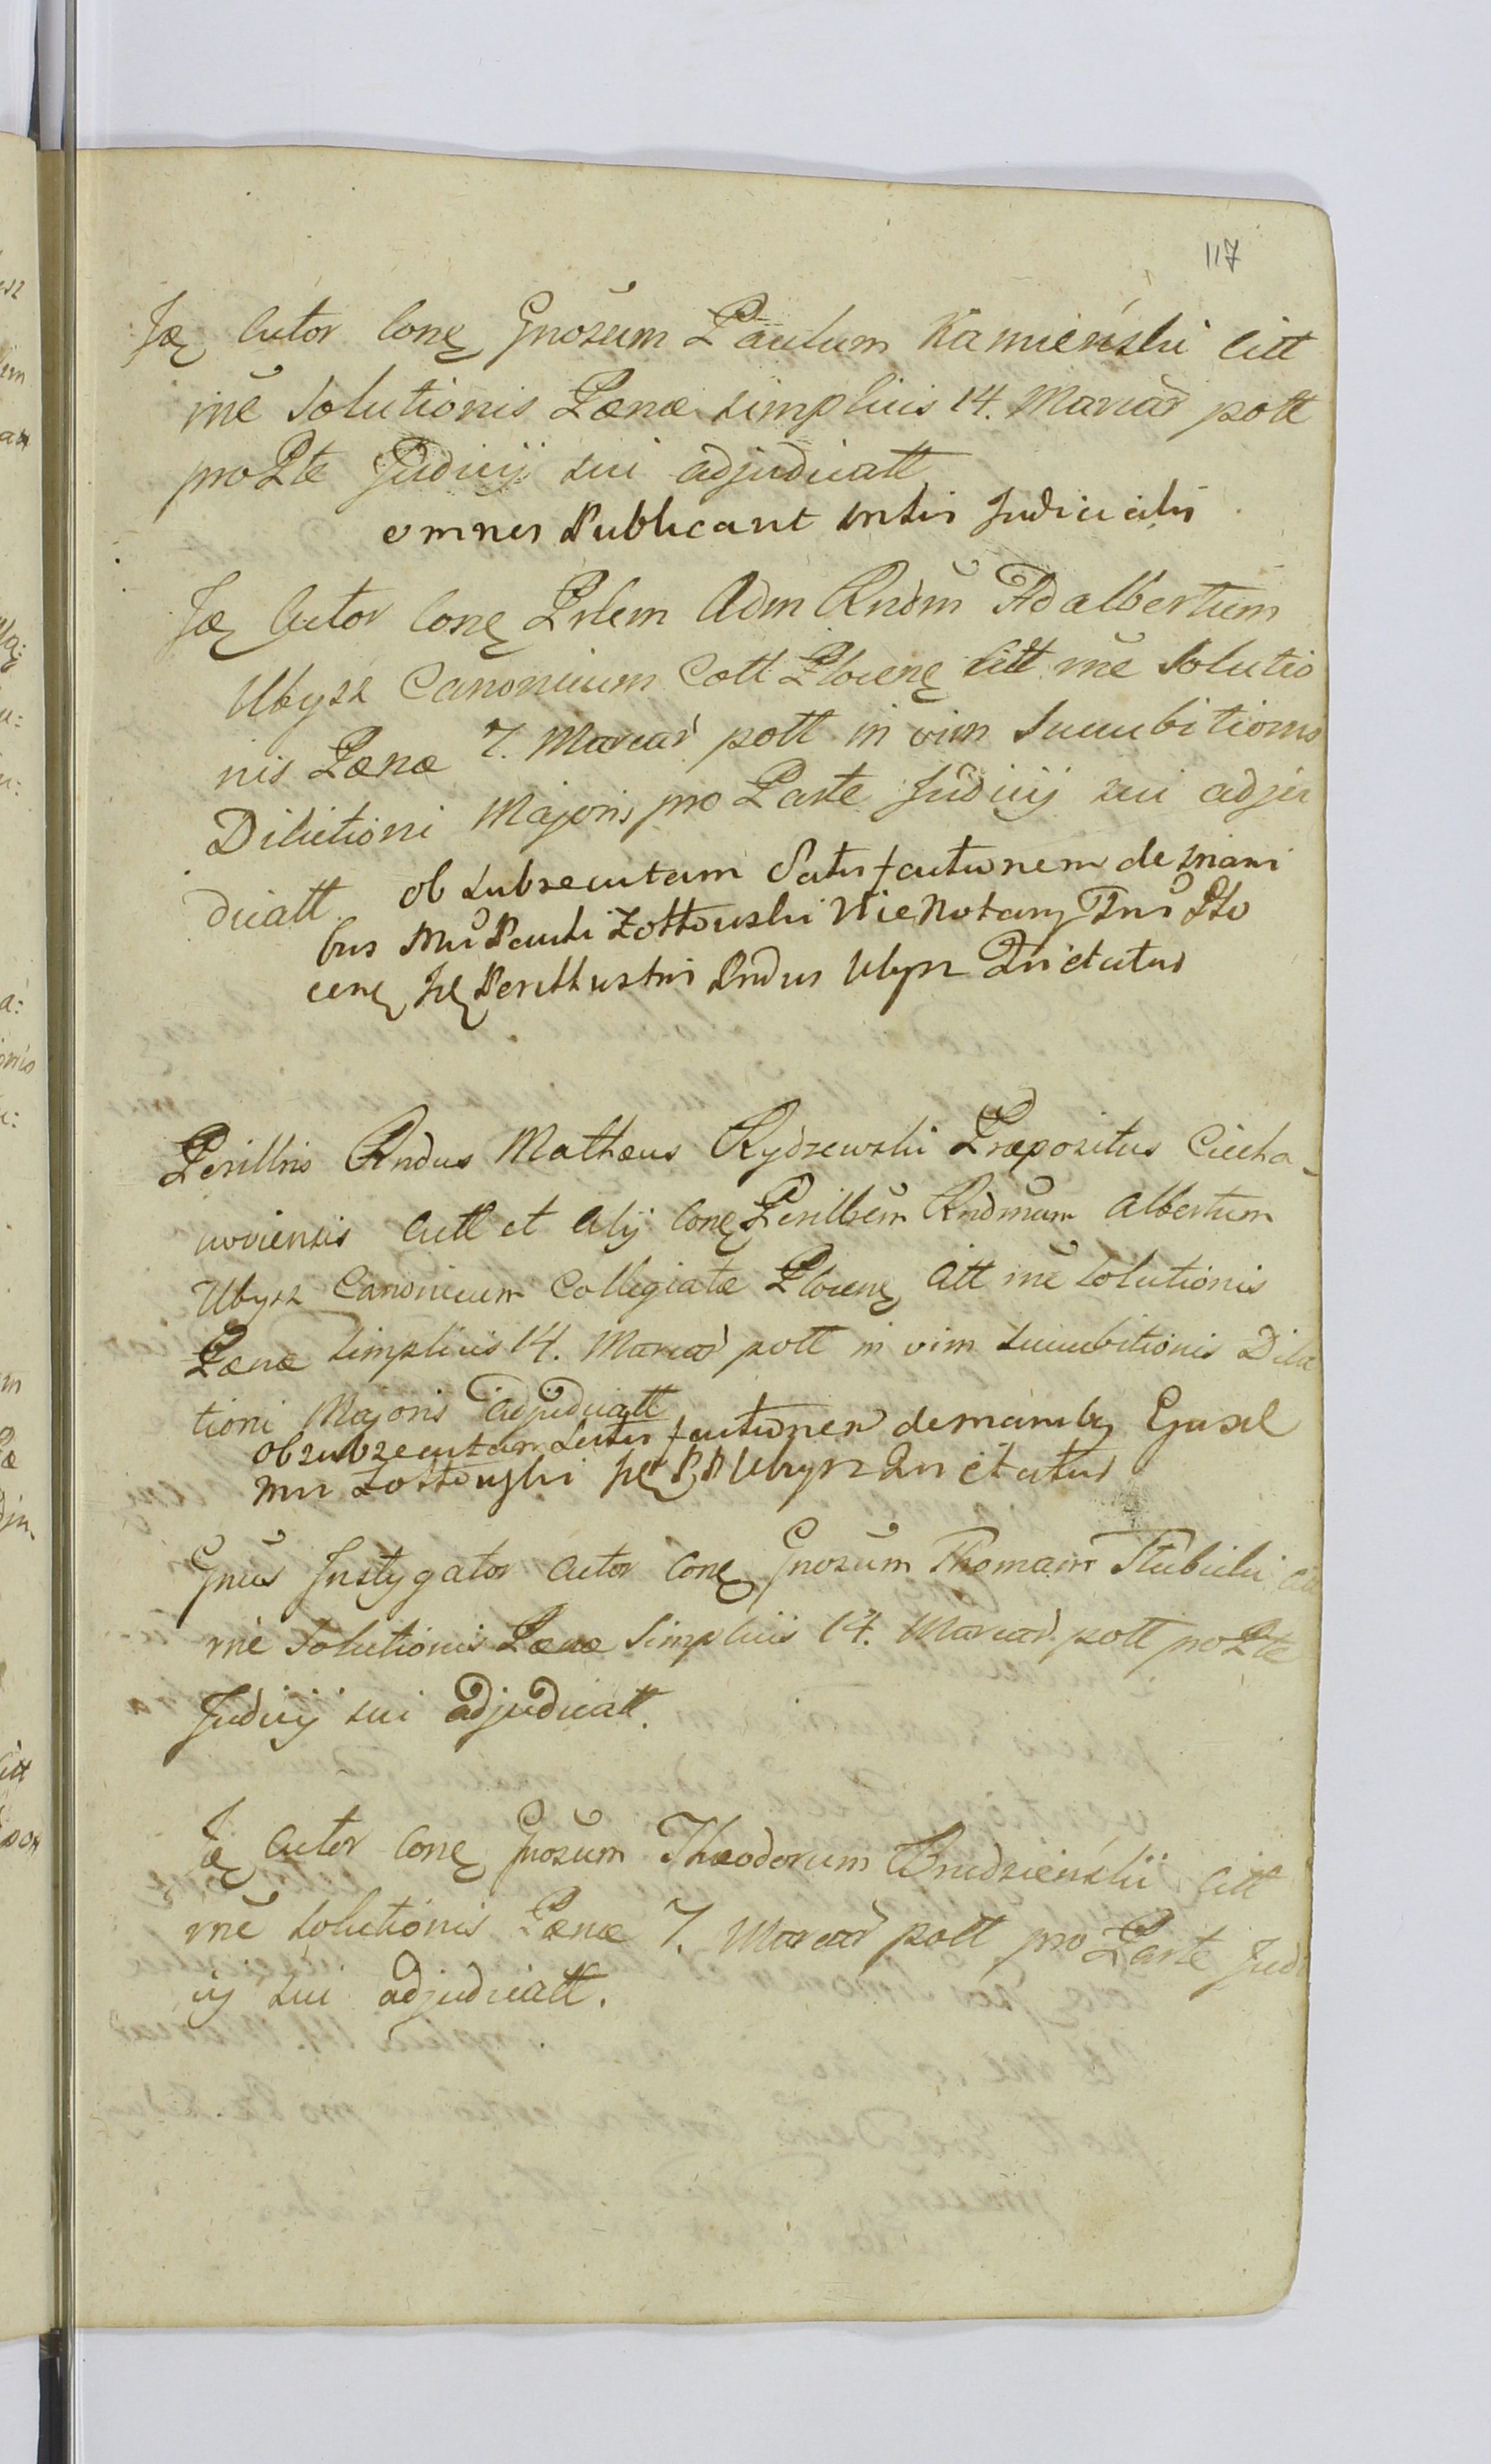 117
Ję Actor Conę Gnosum Paulum Kamienski Citt
rñe Solutionis Pænæ simplicis 14. Marcar pott
pro Pte Judicij sui adjudicatt
omnes Publicant
Ję Actor Conę Adm Rndm Adalbertum
Ubysz Canonicum Coll Plocenę Citt rñe Solutio
nis Pænæ 7. Marcar pott in vim Succubitionis
Dilationi Majoris pro Parte Judicij sui adju
dicatt. ob subsecutam Satisfactionem de mani
bus Mci Pauli Zołtowski Vice Notarij Tris Plo
cenę Ję Perillustris Rndus Ubysz Quietatus
Perillris Rndus Mathæus Rydzewski Præpositus Ciecha-
noviensis Actt et Alij Conę Perillrem Rndmum Albertum
Ubysz Canonicum Collegiatæ Plocenę Citt rñe solutionis
Pænæ simplicis 14. Marcar pott in vim succubitionis Dila
tioni Majoris adjudicatt
ob subsecutam Satisfactionem de manibg Ejusd
Zołtowski Ję PR Ubysz Quietatus
Gnus Instygator Actor Conę Gnosum Thomam
rñe Solutionis Pænæ Simplicis 14. Marcar pott pro Pte
Judicij sui adjudicatt.
Ję Actor Conę Gnosum Theodorum Brudzienskii Citt
rñe solutionis Pænæ 7. Marcar pott pro Parte Judi
ij sui adjudicatt.